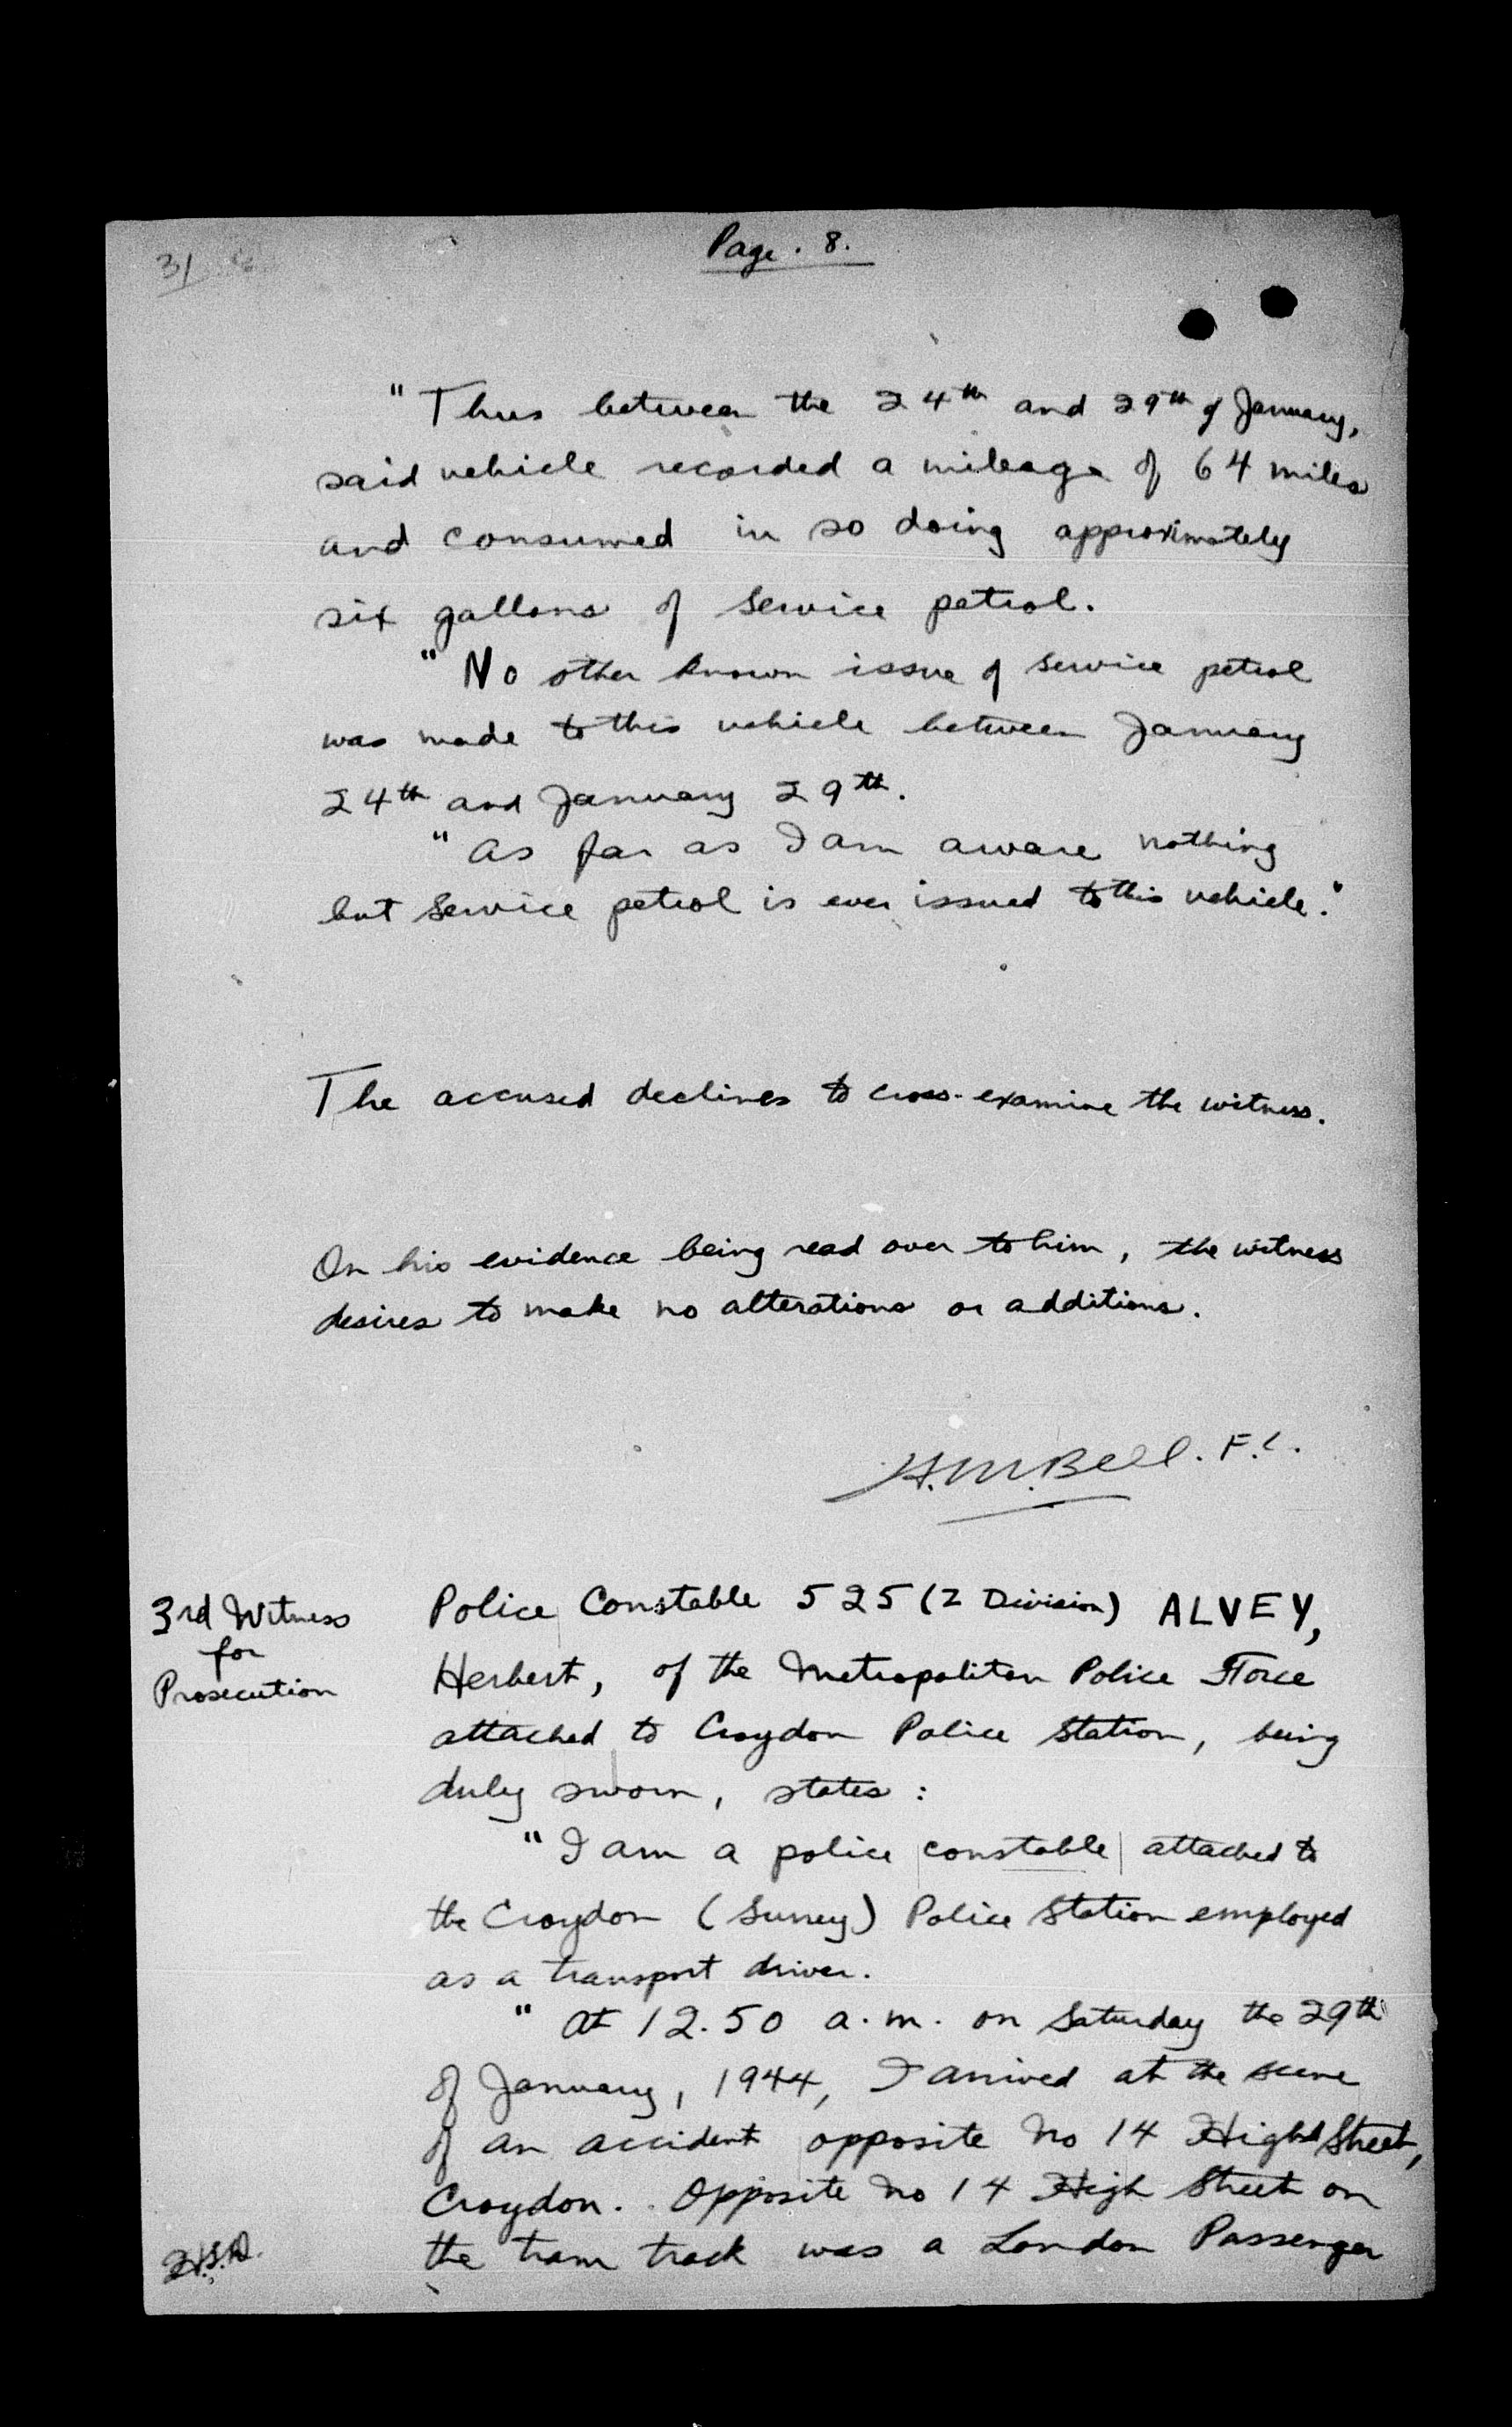 31
Page . 8.
" Thus between the 24th and 29th of January,
said vehicle recorded a mileage of 64 miles
and consumed in so doing approximately
six gallons of Service petrol.
" No other known issue of service petrol
was made to this vehicle between January
24th and January 29th.
" As far as I am aware nothing
but Service petrol is ever issued to this vehicle."
The accused declines to cross-examine the witness.
On his evidence being read over to him, the witness
desires to make no alterations or additions.
H.M.Bell. F.L.
3rd Witness
for
Prosecution
Police Constable 525 (Z Division) ALVEY,
Herbert, of the Metropolitan Police Force
attached to Croydon Police Station, being
duly sworn, states :
" I am a police constable attached to
the Croydon (Surrey) Police Station employed
as a transport driver.
" At 12.50 a.m. on Saturday the 29th
of January, 1944, I arrived at the scene
of an accident opposite No 14 High Street,
Croydon. Opposite No 14 High Street on
the tram track was a London Passenger